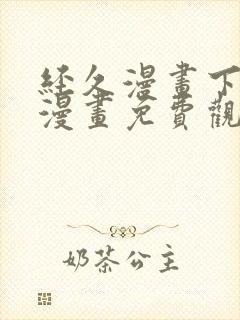 經久漫畫下
漫畫免費觀
奶茶公主